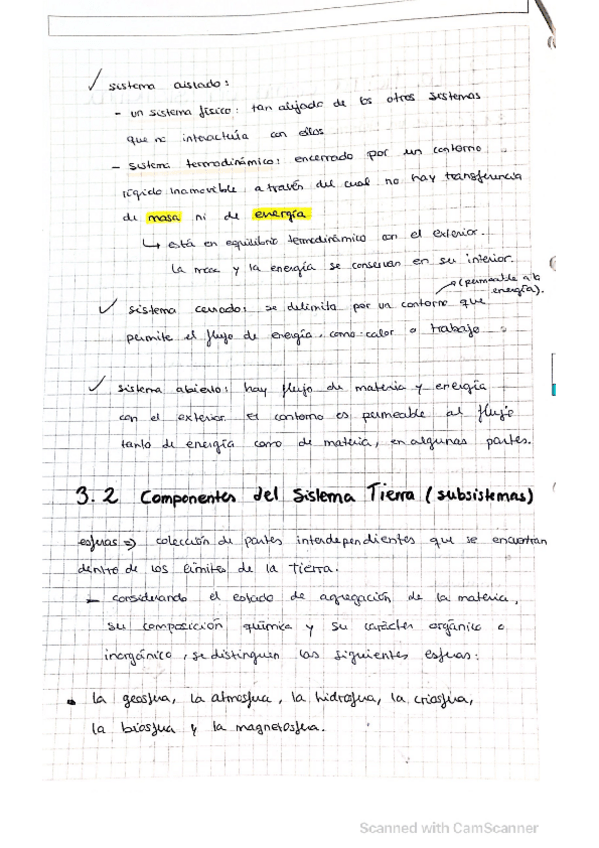 ✓ sistema aislado:
- un sistema físico: tan alejado de los otros sistemas
que no interactúa con ellos
- sistema termodinámico: encerrado por un contorno
rígido inamovible a través del cual no hay transferencia
de masa ni de energía
↳ está en equilibrio termodinámico con el exterior.
La masa y la energía se conservan en su interior.
✓ sistema cerrado: se delimita por un contorno que → (permeable a la energía).
permite el flujo de energía, como calor o trabajo
✓ sistema abierto: hay flujo de materia y energía
con el exterior. El contorno es permeable al flujo
tanto de energía como de materia, en algunas partes.
3.2 Componentes del Sistema Tierra (subsistemas)
esferas => colección de partes interdependientes que se encuentran
dentro de los límites de la Tierra.
- considerando el estado de agregación de la materia,
su composición química y su carácter orgánico o
inorgánico, se distinguen las siguientes esferas:
• la geosfera, la atmosfera, la hidrosfera, la criosfera,
la biosfera y la magnetosfera.
Scanned with CamScanner